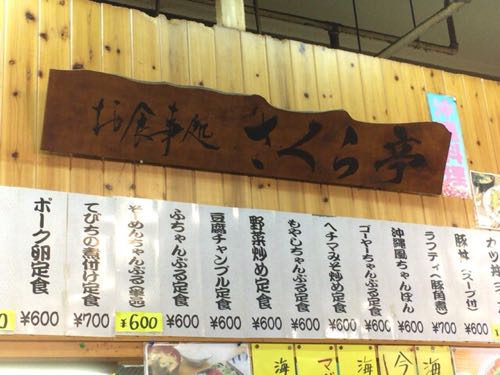 お食事処 さくら亭
ポーク卵定食
¥600
てびちの煮付け定食
¥700
¥600
ふちゃんぷる定食
¥600
豆腐チャンプル定食
¥600
野菜炒め定食
¥600
もやしちゃんぷる定食
¥600
ヘチマみそ炒め定食
¥600
ゴーヤーちゃんぷる定食
¥600
沖縄風ちゃんぽん
¥600
ラフティ(豚角煮)
¥700
豚丼(スープ付)
¥600
カツ丼
海
マ
海
今
海